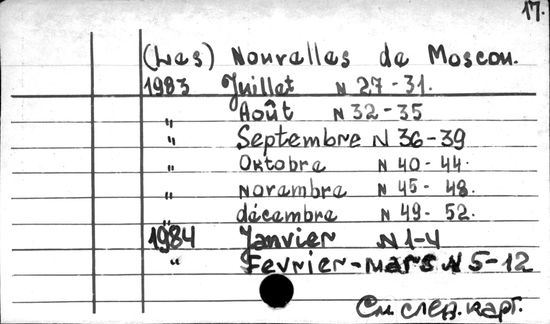 17.
(Les) Nouvelles de Moscou.
1983 Juillet N 27-31.
" Août N 32-35
" Septembre N 36-39
" Oktobre N 40-44.
" novembre N 45-48.
" décembre N 49-52.
1984 Janvier N 1-4
" Fevrier-mars N 5-12
См. след. карт.